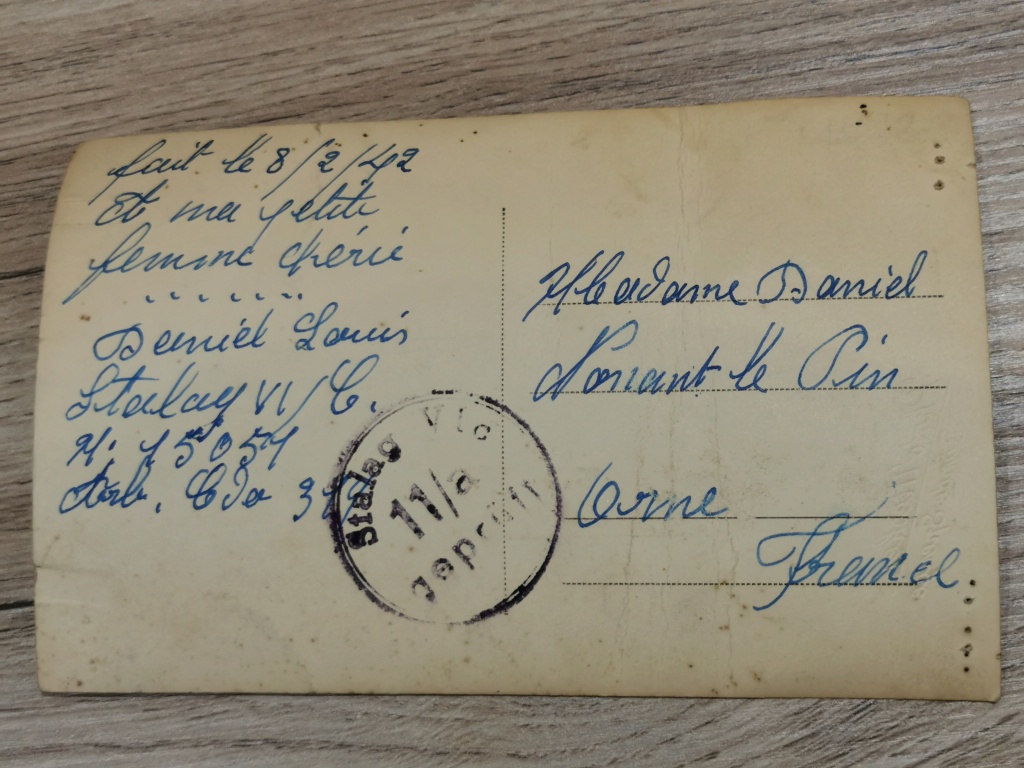 fait le 8/2/42
Et ma petite
femme chérie
.......
Daniel Louis
Stalag VI/C.
N: 15051
Arb. Cdo
Stalag VIc
11/a
geprüft
Madame Daniel
Nonant le Pin
Orne
France.